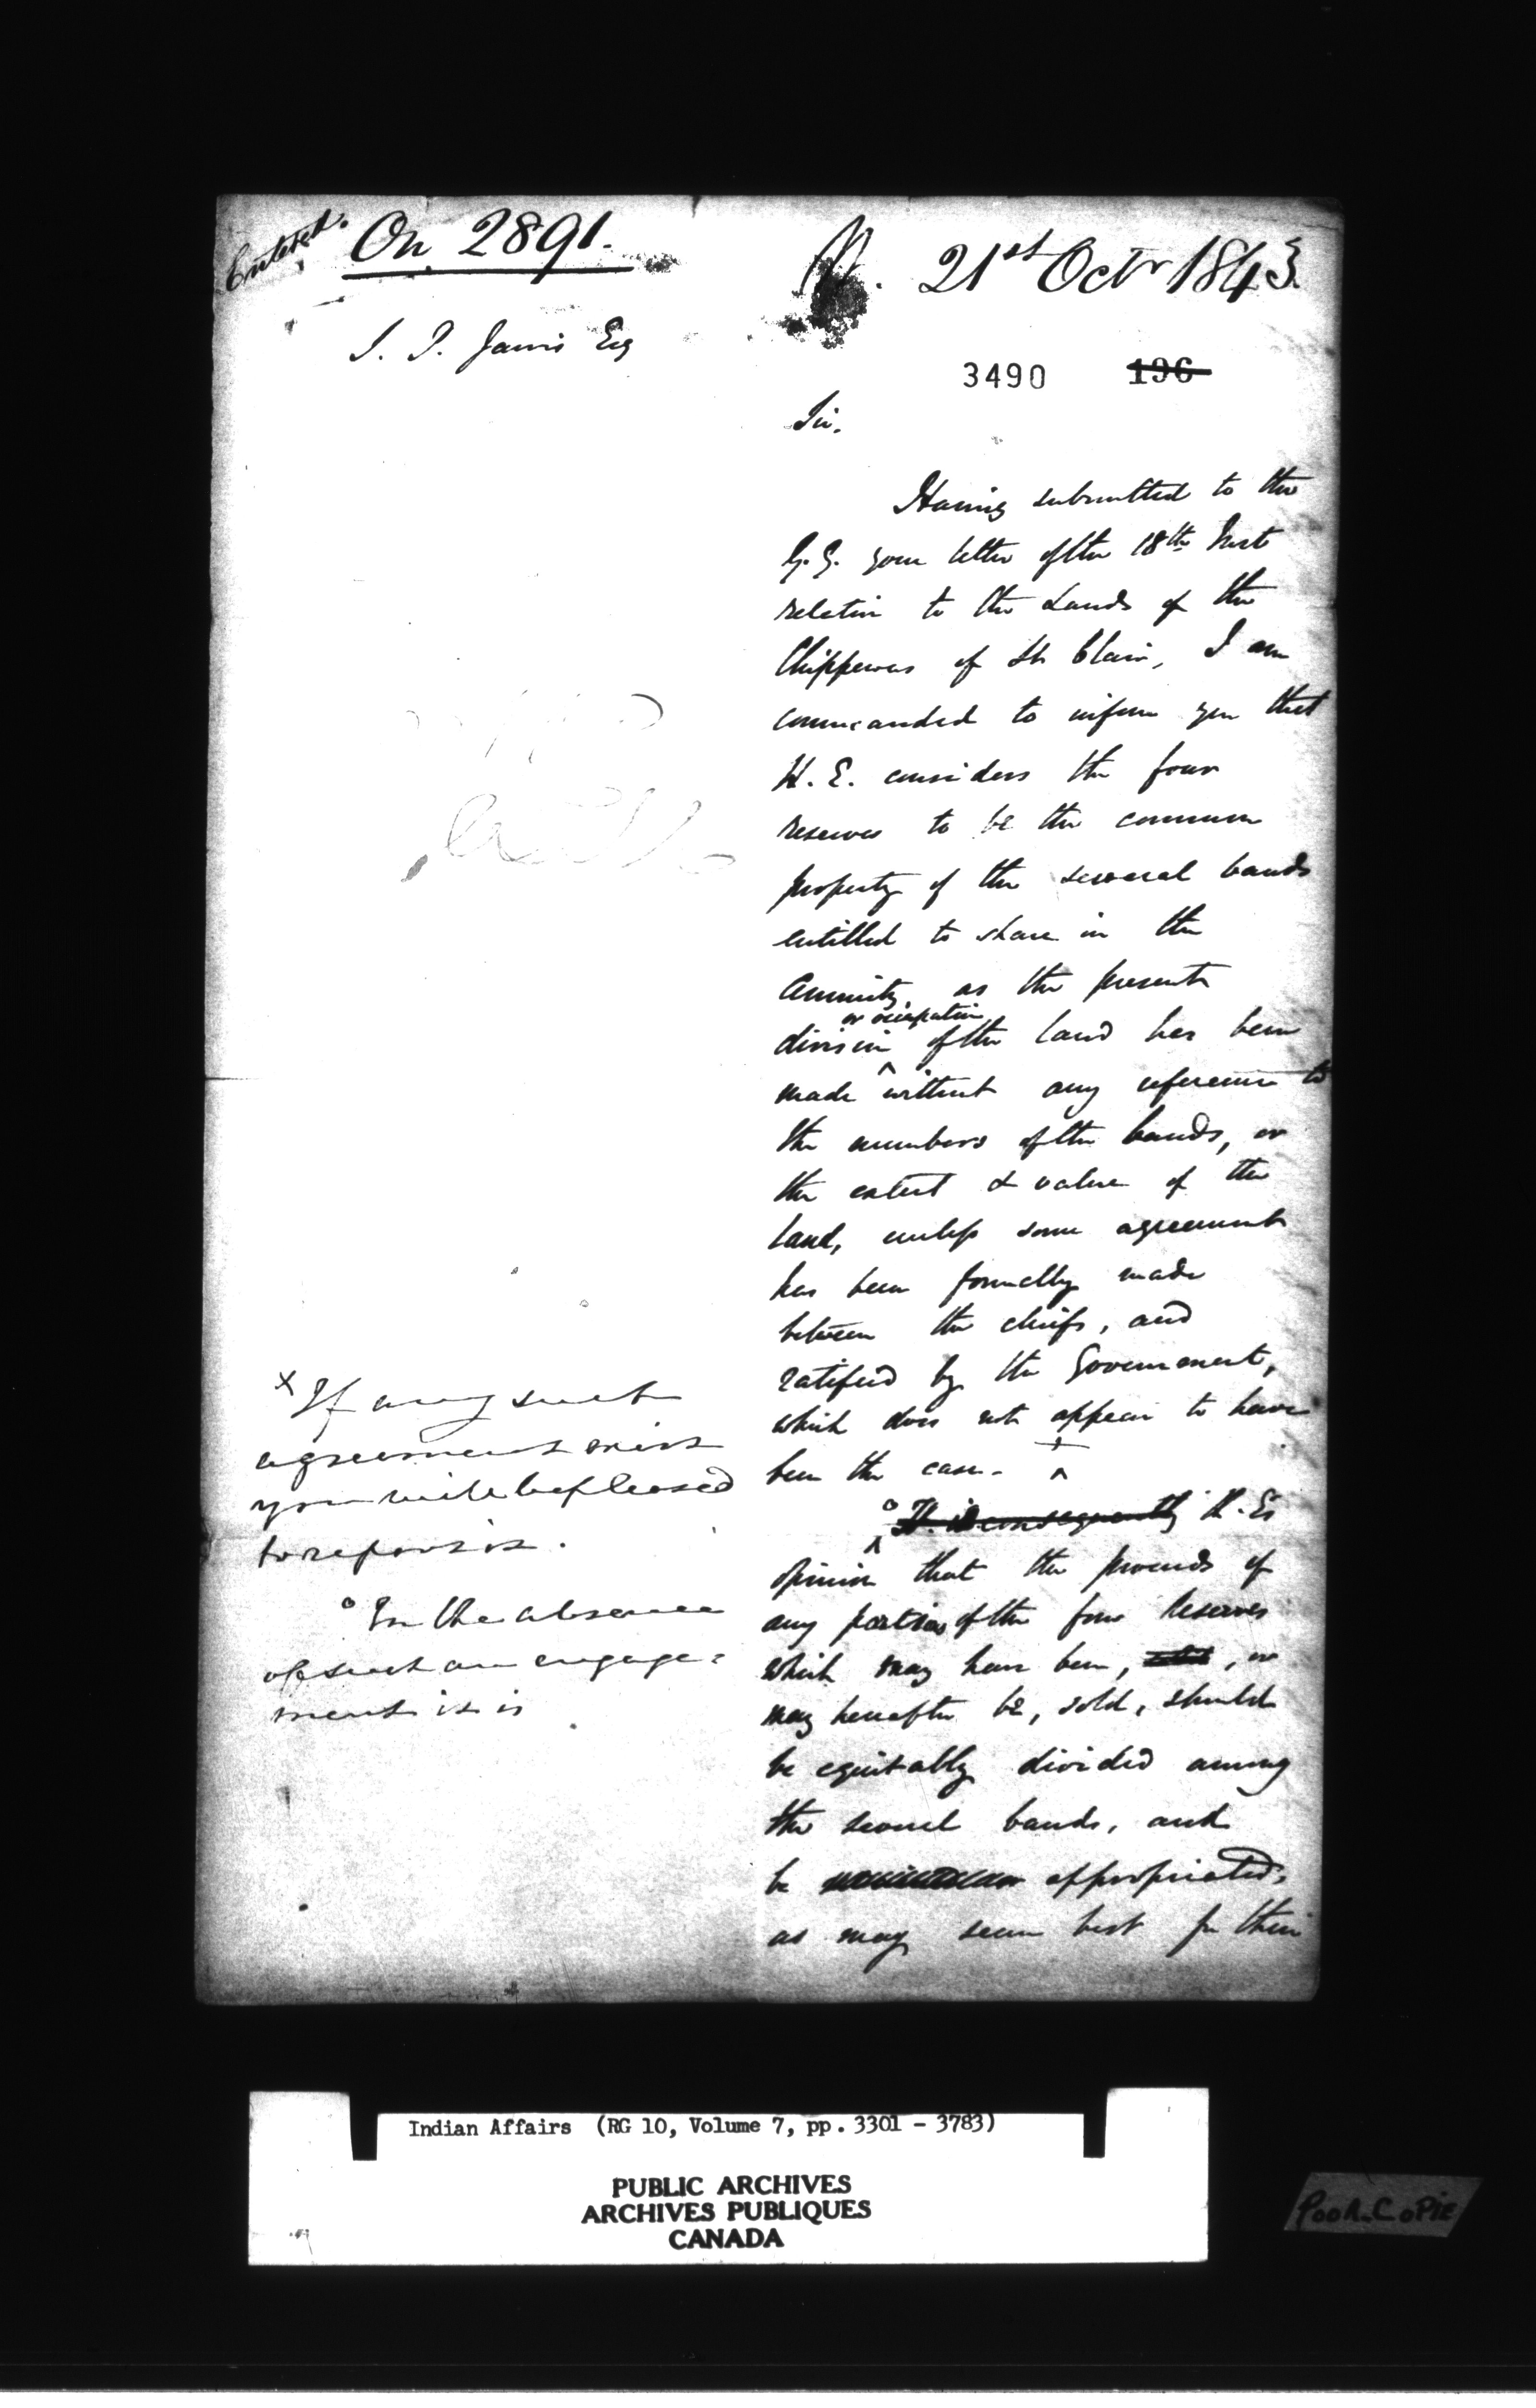 Entered.
On 2891.
21st Octr 1843.
S. P. Jarvis Esq
3490 196
Sir,
Having submitted to the
G. G. your letter of the 18th Inst
relative to the Lands of the
Chippewas of St Clair, I am
commanded to inform you that
H. E. considers the four
reserves to be the common
property of the several bands
entitled to share in the
Annuity, as the present
or occupation
division of the land has been
made without any reference to
the numbers of the bands, or
the extent & value of the
land, unless some agreement
has been formally made
between the chiefs, and
ratified by the Government,
which does not appear to have
been the case.
x If any such
agreement exist
you will be pleased
to report it.
It is consequently H. E's
o In the absence
of such an engage=
ment it is
opinion that the proceeds of
any portion of the four Reserves
which may have been, sold, or
may hereafter be, sold, should
be equitably divided among
the several bands, and
be appropriated,
as may seem best for their
Indian Affairs (RG 10, Volume 7, pp. 3301 - 3783)
PUBLIC ARCHIVES
ARCHIVES PUBLIQUES
CANADA
POOR COPIE